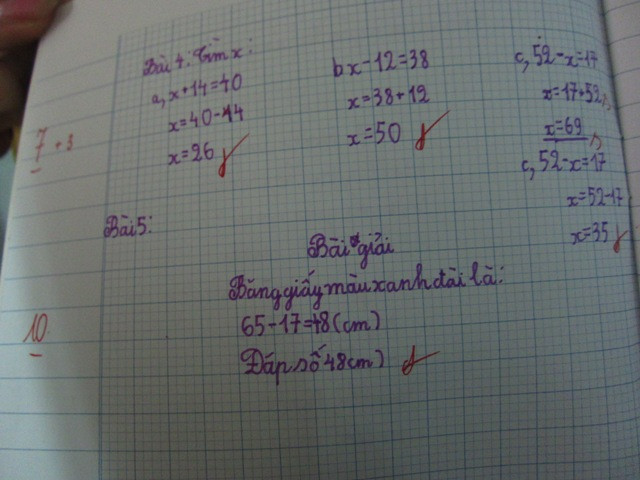 Bài 4: Tìm x:
a, x+14=40
x=40-14
x=26
b x-12=38
x=38+12
x=50
c, 52-x=17
x=17+52 s
x=69 s
c, 52-x=17
x=52-17
x=35
7 + 3
Bài 5:
Bài giải
Băng giấy màu xanh dài là:
65-17=48(cm)
Đáp số 48cm)
10